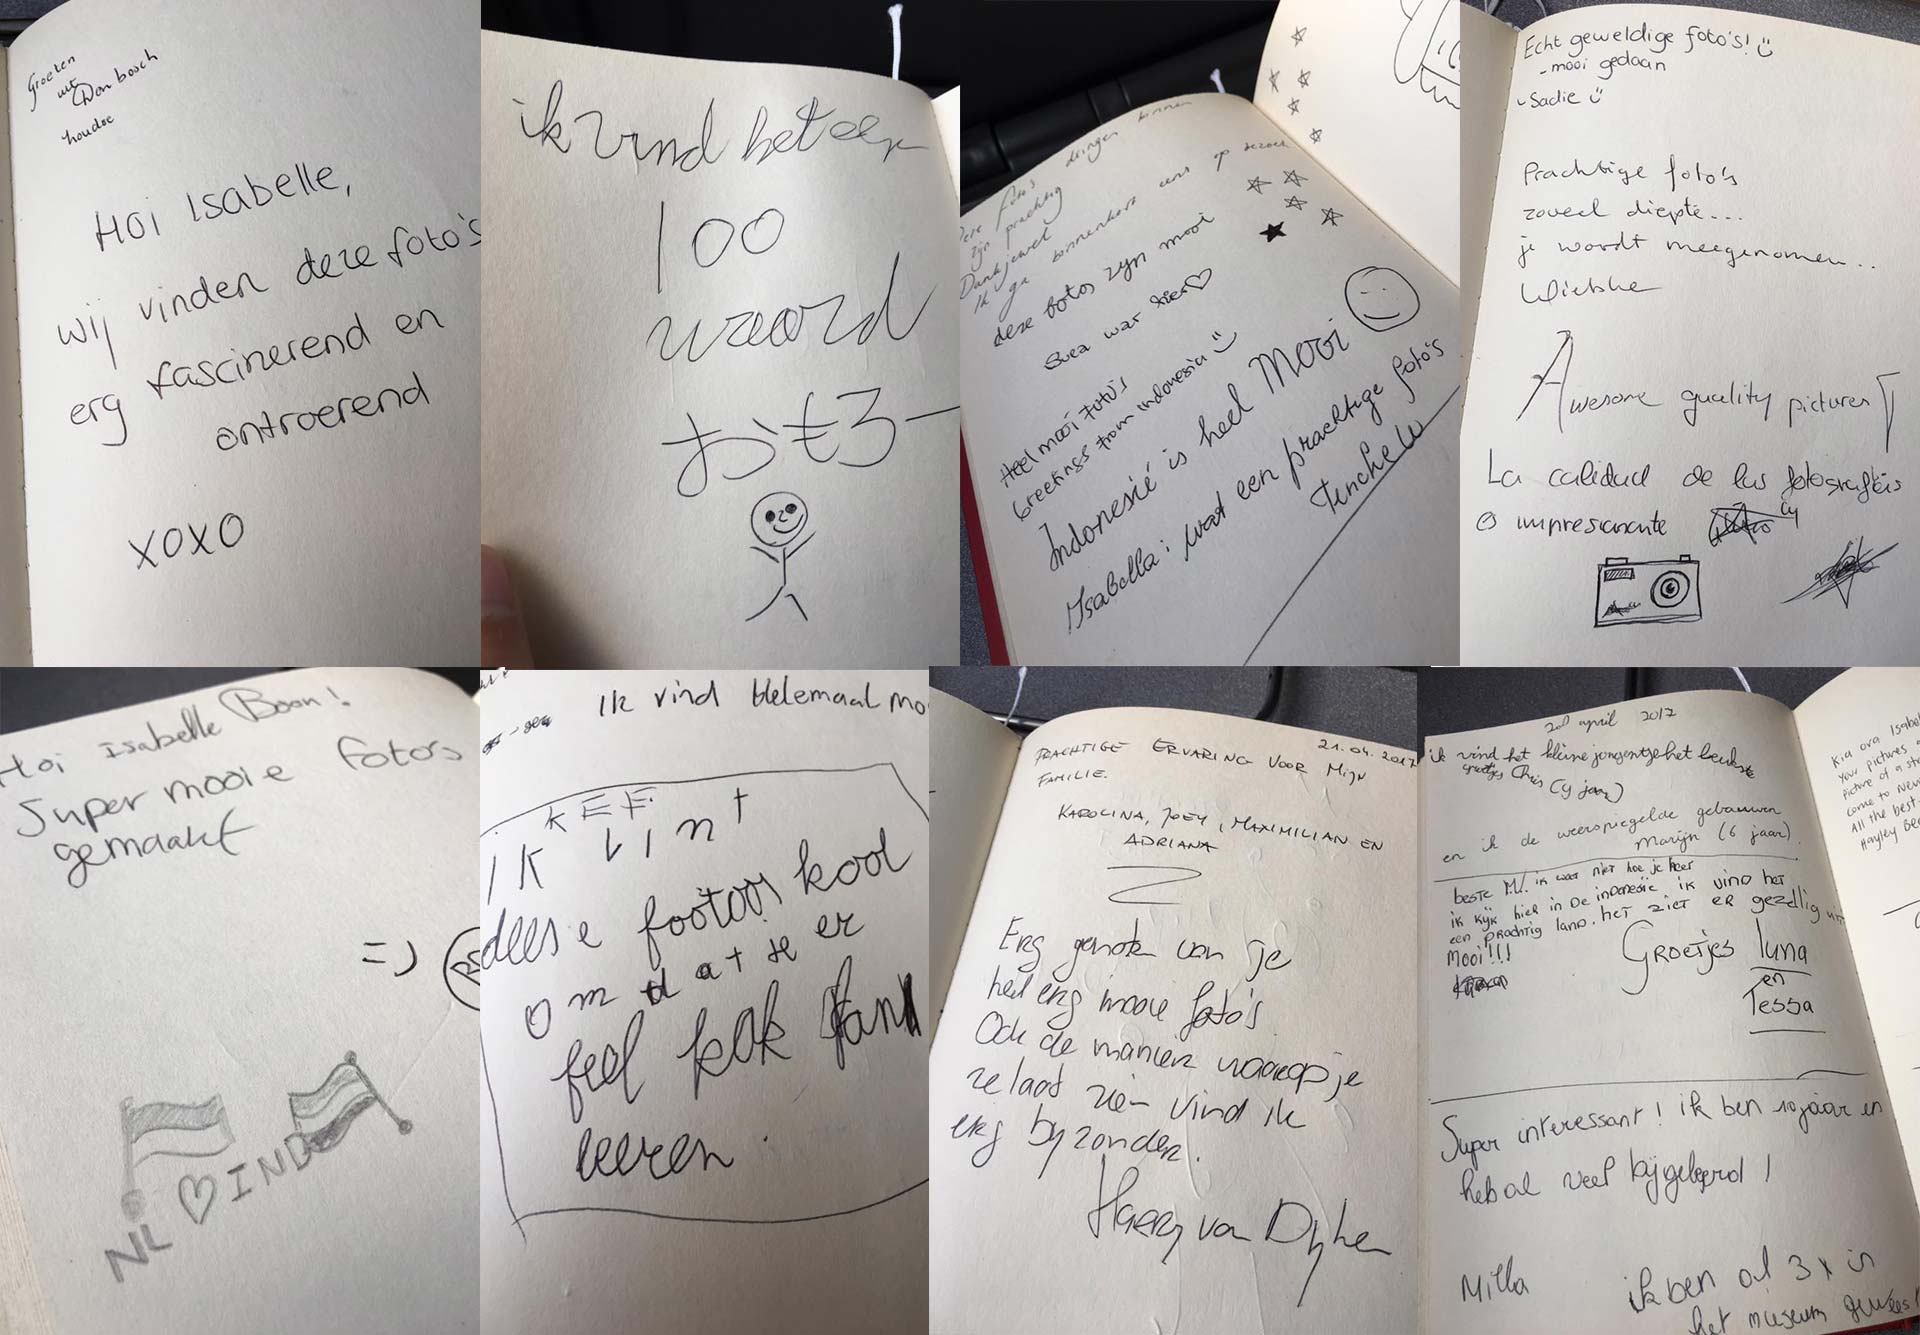 Groeten
uit Don bosch
houdoe
Hoi Isabelle,
wij vinden deze foto's
erg fascinerend en
ontroerend
XOXO
ik vind het een
100
woord
おもろー
Deze foto's dringen binnen
zijn prachtig
Dankjewel
Ik ga binnenkort eens op bezoek
deze fotos zyn mooi
Svea war hier♡
Heel mooi Foto's
Greetings from indonesia
Indonesië is heel Mooi
Isabella: wat een prachtige foto's
Echt geweldige foto's!
-mooi gedaan
-Sadie
Prachtige foto's
zoveel diepte...
je wordt meegenomen..
Wiebke
Awesome quality pictures
La calidad de las fotografías
es impresionante
Hoi isabelle Boon!
Super mooie foto's
gemaakt
=)
NL ♡ IND
Ik vind Helemaal mo
KEF
IK Vint
deese footoos kool
omdat je er
feel kak fan
leeren.
PRACHTIGE ERVARING VOOR MIJN
FAMILIE.
21.04.2017
KAROLINA, JOEY, MAXIMILIAN EN
ADRIANA
Erg genoten van je
heel erg mooie foto's.
Ook de manier waarop je
ze laat zien vind ik
erg byzonder.
Harry van Dyken
20 april 2017
ik vind het kleine jongentje het leukste
groetjes Chris (9 jaar)
en ik de weerspiegelde gebouwen
Marijn (6 jaar)
beste M... ik weet niet hoe je heet
ik kijk hier in De indonesie. ik vind het
een prachtig land. het ziet er gezellig uit
Mooi!!!
Groetjes luna
en
Tessa
Super interessant! ik ben 10 jaar en
heb al veel bijgeleerd!
Milla
ik ben al 3x in
het museum geweest
Kia ora Isabel
Your pictures
Picture of a
come to New
All the best
Hayley